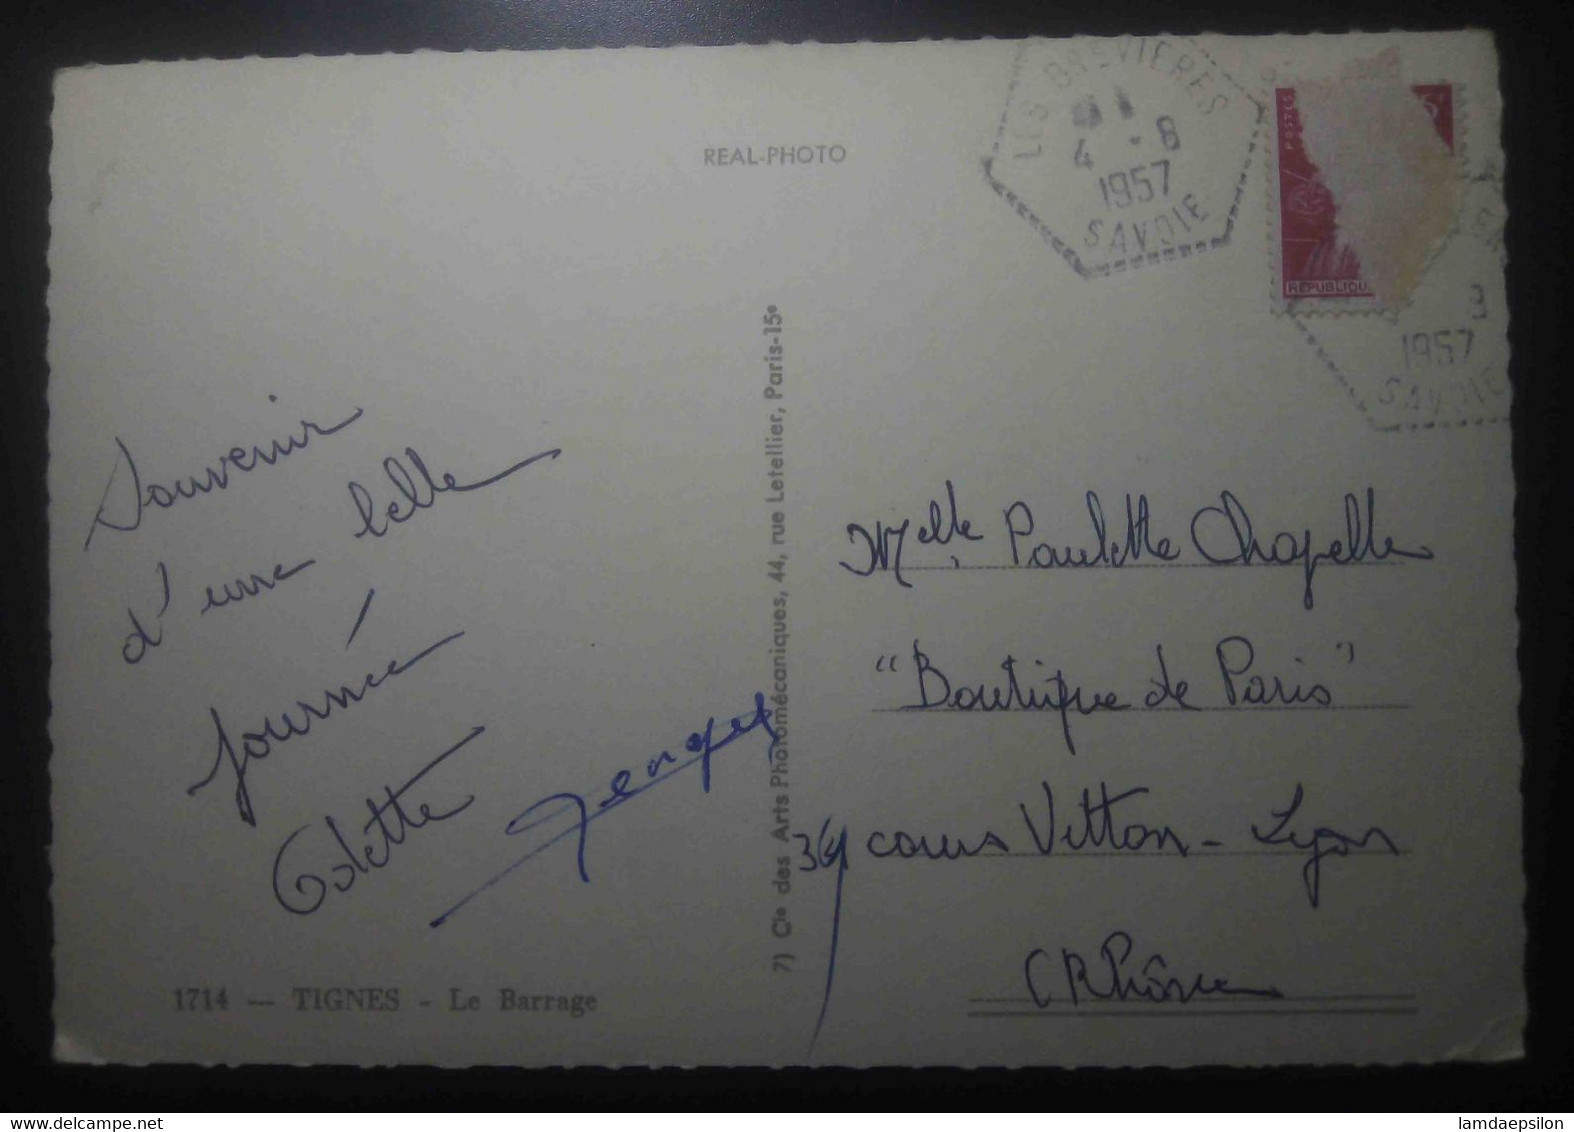 REAL-PHOTO
LES BREVIERES
4 - 8
1957
SAVOIE
POSTES
REPUBLIQU
8
1957
SAVOIE
Souvenir
d'une belle
journée
Colette
7) Cie des Arts Photomécaniques, 44, rue Letellier, Paris-15e
1714 — TIGNES - Le Barrage
Melle Paulette Chapelle
"Boutique de Paris"
cours Vitton - Lyon
(Rhône
lamdaepsilon | Delcampe.net